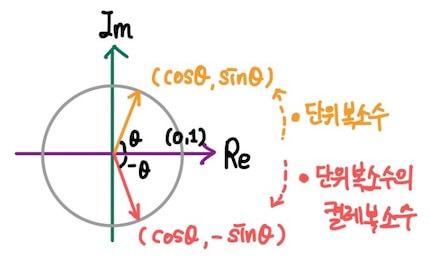 Im
(cosθ, sinθ)
• 단위복소수
θ
(0,1)
Re
-θ
• 단위복소수의
켤레복소수
(cosθ, -sinθ)